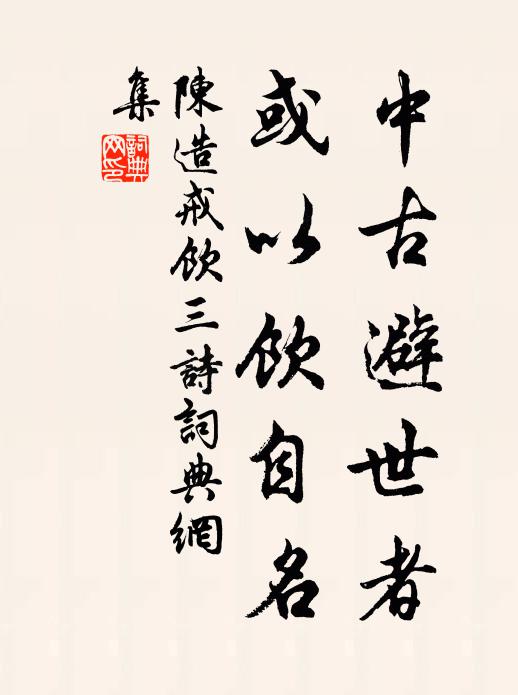 中古避世者
或以飲自名
陳造戒飲三詩詞典網
集
詞典網印